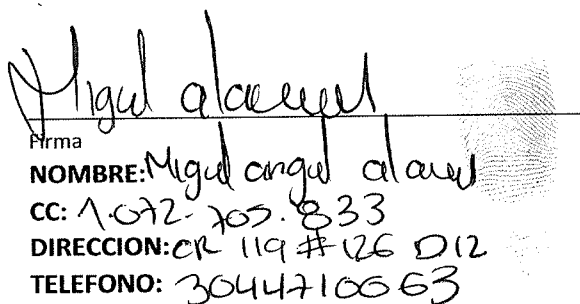 Miguel alarcon
Firma
NOMBRE: Miguel angel alarcon
CC: 1.072.705.833
DIRECCION: CR 119 # 126 D12
TELEFONO: 3044710063